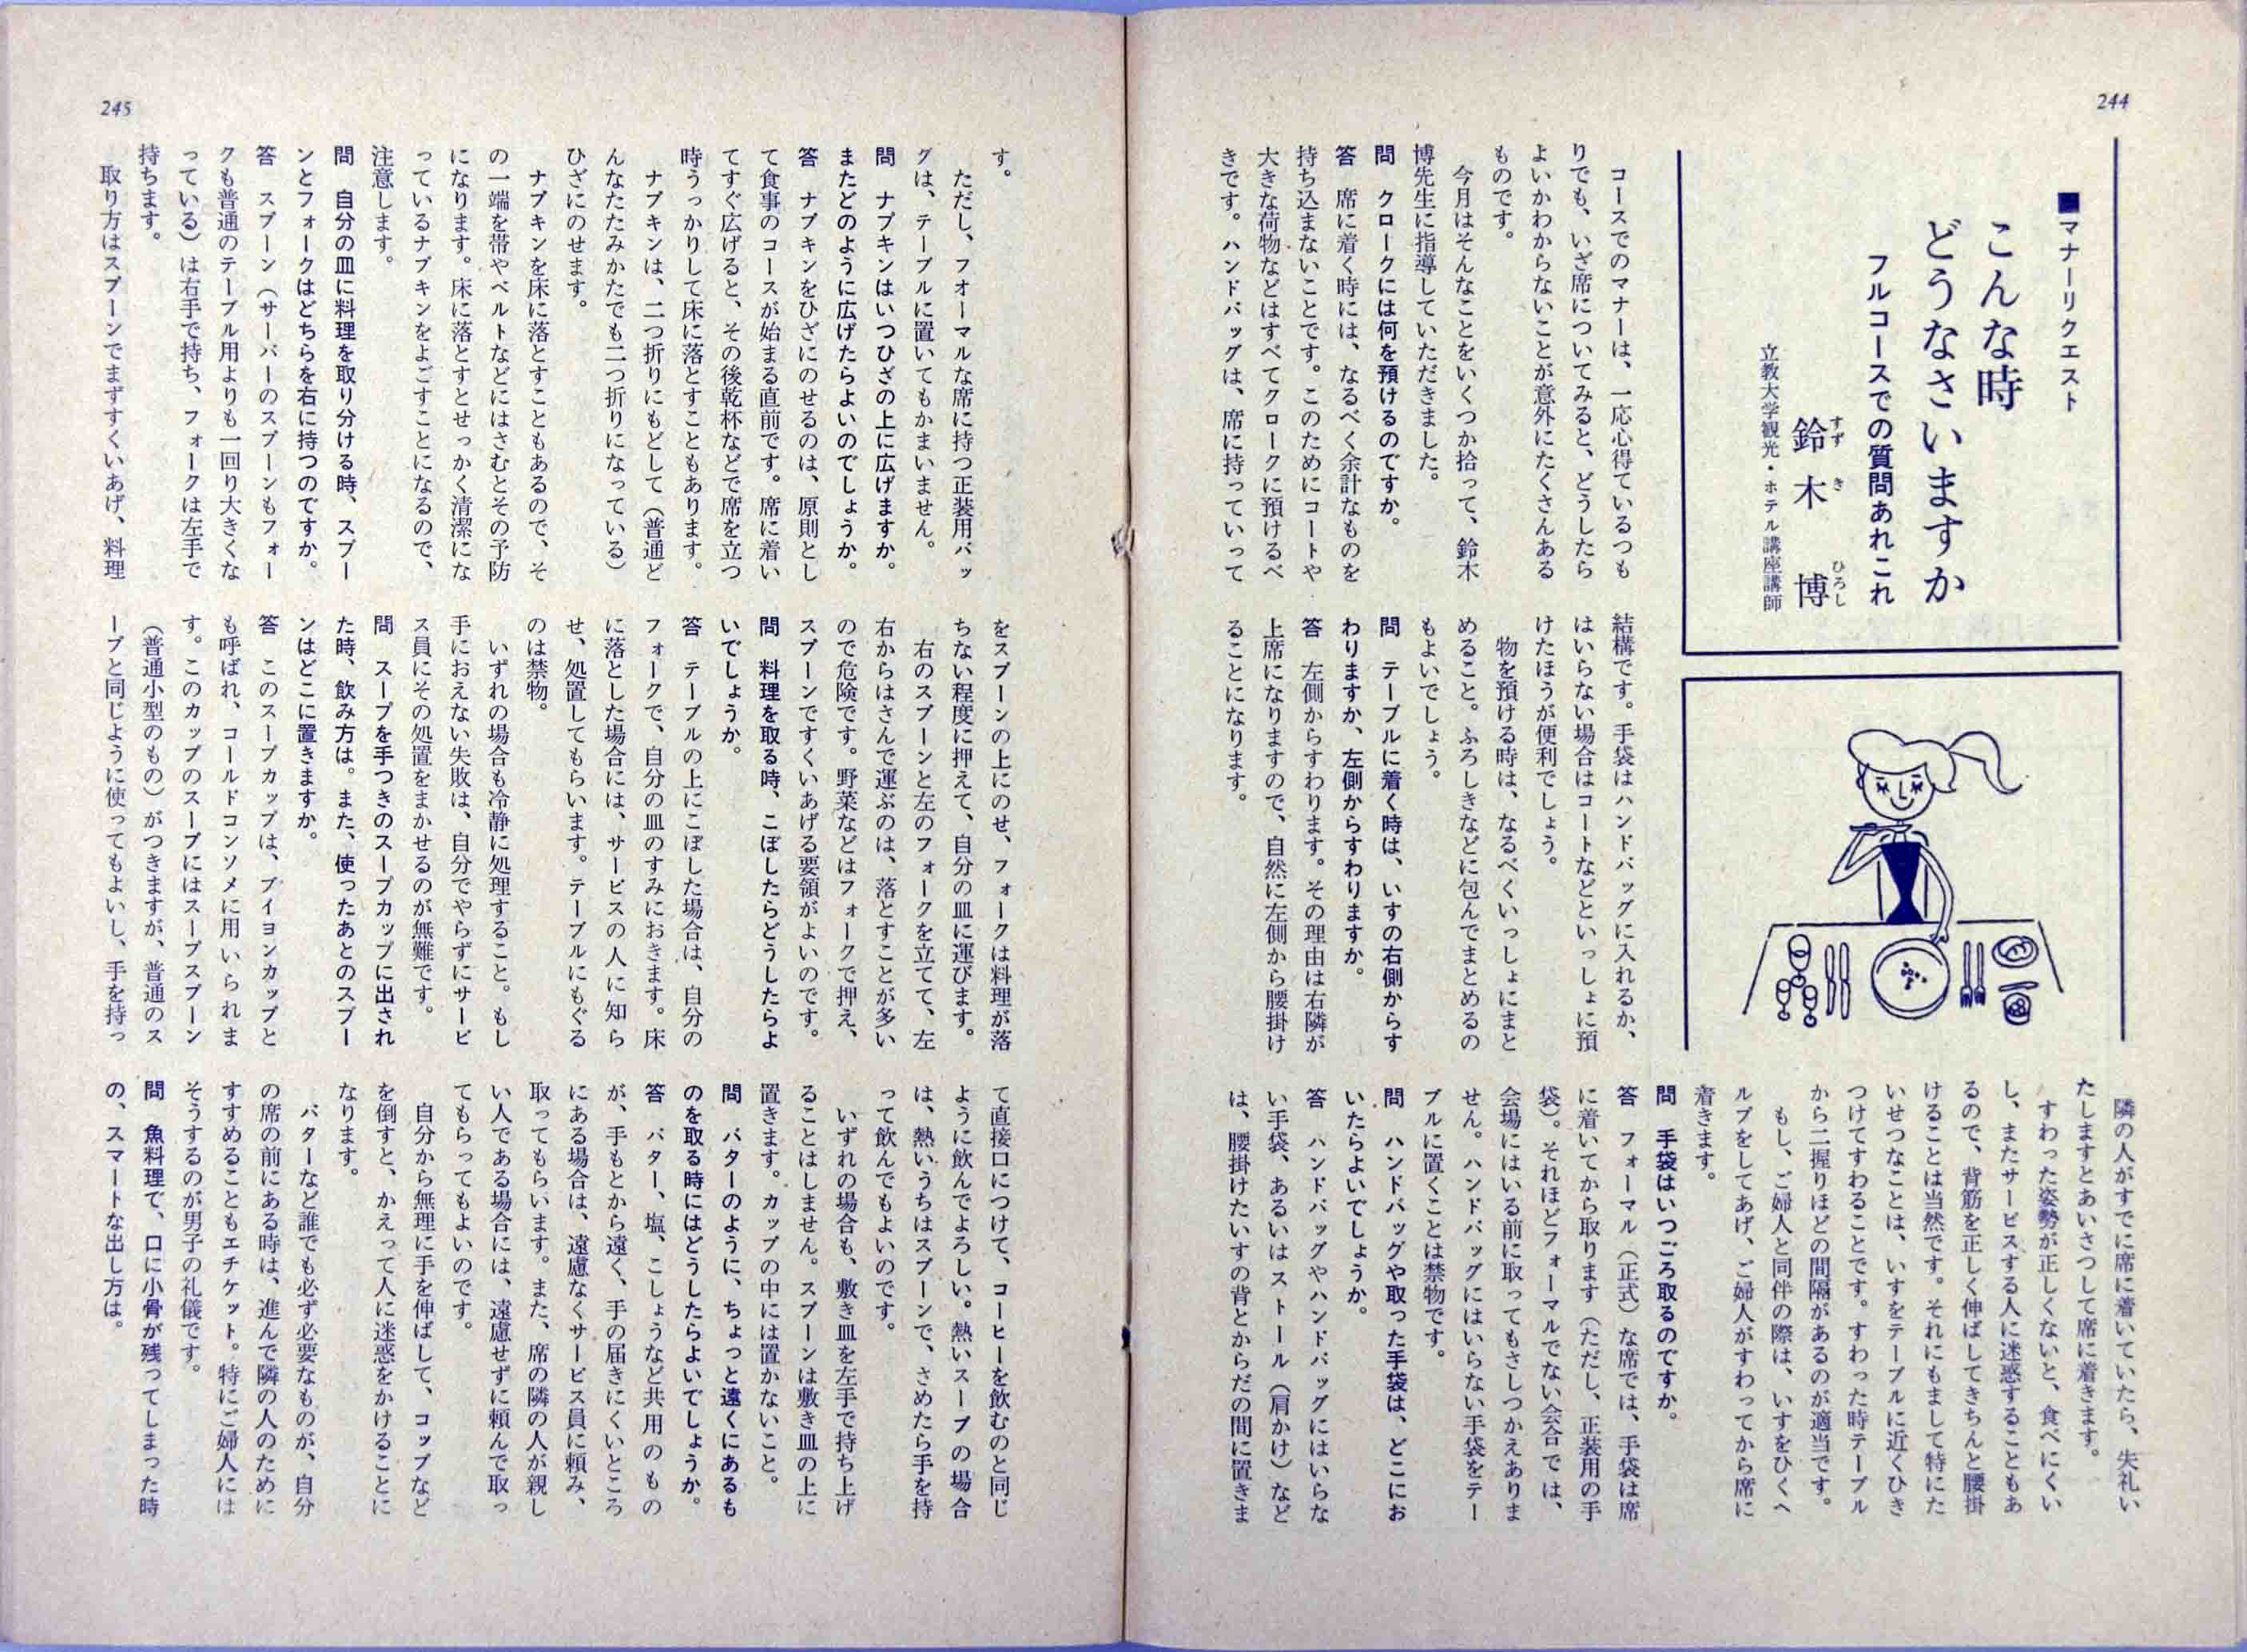 244
■マナーリクエスト
こんな時
どうなさいますか
フルコースでの質問あれこれ
鈴木 博
すずき ひろし
立教大学観光・ホテル講座講師
コースでのマナーは、一応心得ているつも
りでも、いざ席についてみると、どうしたら
よいかわからないことが意外にたくさんある
ものです。
今月はそんなことをいくつか拾って、鈴木
博先生に指導していただきました。
問　クロークには何を預けるのですか。
答　席に着く時には、なるべく余計なものを
持ち込まないことです。このためにコートや
大きな荷物などはすべてクロークに預けるべ
きです。ハンドバッグは、席に持っていって
結構です。手袋はハンドバッグに入れるか、
はいらない場合はコートなどといっしょに預
けたほうが便利でしょう。
物を預ける時は、なるべくいっしょにまと
めること。ふろしきなどに包んでまとめるの
もよいでしょう。
問　テーブルに着く時は、いすの右側からす
わりますか、左側からすわりますか。
答　左側からすわります。その理由は右隣が
上席になりますので、自然に左側から腰掛け
ることになります。
隣の人がすでに席に着いていたら、失礼い
たしますとあいさつして席に着きます。
すわった姿勢が正しくないと、食べにくい
し、またサービスする人に迷惑することもあ
るので、背筋を正しく伸ばしてきちんと腰掛
けることは当然です。それにもまして特にた
いせつなことは、いすをテーブルに近くひき
つけてすわることです。すわった時テーブル
から二握りほどの間隔があるのが適当です。
もし、ご婦人と同伴の際は、いすをひくヘ
ルプをしてあげ、ご婦人がすわってから席に
着きます。
問　手袋はいつごろ取るのですか。
答　フォーマル（正式）な席では、手袋は席
に着いてから取ります（ただし、正装用の手
袋）。それほどフォーマルでない会合では、
会場にはいる前に取ってもさしつかえありま
せん。ハンドバッグにはいらない手袋をテー
ブルに置くことは禁物です。
問　ハンドバッグや取った手袋は、どこにお
いたらよいでしょうか。
答　ハンドバッグやハンドバッグにはいらな
い手袋、あるいはストール（肩かけ）など
は、腰掛けたいすの背とからだの間に置きま
245
す。
ただし、フォーマルな席に持つ正装用バッ
グは、テーブルに置いてもかまいません。
問　ナプキンはいつひざの上に広げますか。
またどのように広げたらよいのでしょうか。
答　ナプキンをひざにのせるのは、原則とし
て食事のコースが始まる直前です。席に着い
てすぐ広げると、その後乾杯などで席を立つ
時うっかりして床に落とすこともあります。
ナプキンは、二つ折りにもどして（普通ど
んなたたみかたでも二つ折りになっている）
ひざにのせます。
ナプキンを床に落とすこともあるので、そ
の一端を帯やベルトなどにはさむとその予防
になります。床に落とすとせっかく清潔にな
っているナプキンをよごすことになるので、
注意します。
問　自分の皿に料理を取り分ける時、スプー
ンとフォークはどちらを右に持つのですか。
答　スプーン（サーバーのスプーンもフォー
クも普通のテーブル用よりも一回り大きくな
っている）は右手で持ち、フォークは左手で
持ちます。
取り方はスプーンでまずすくいあげ、料理
をスプーンの上にのせ、フォークは料理が落
ちない程度に押えて、自分の皿に運びます。
右のスプーンと左のフォークを立てて、左
右からはさんで運ぶのは、落とすことが多い
ので危険です。野菜などはフォークで押え、
スプーンですくいあげる要領がよいのです。
問　料理を取る時、こぼしたらどうしたらよ
いでしょうか。
答　テーブルの上にこぼした場合は、自分の
フォークで、自分の皿のすみにおきます。床
に落とした場合には、サービスの人に知ら
せ、処置してもらいます。テーブルにもぐる
のは禁物。
いずれの場合も冷静に処理すること。もし
手におえない失敗は、自分でやらずにサービ
ス員にその処置をまかせるのが無難です。
問　スープを手つきのスープカップに出され
た時、飲み方は。また、使ったあとのスプー
ンはどこに置きますか。
答　このスープカップは、ブイヨンカップと
も呼ばれ、コールドコンソメに用いられま
す。このカップのスープにはスープスプーン
（普通小型のもの）がつきますが、普通のス
ープと同じように使ってもよいし、手を持っ
て直接口につけて、コーヒーを飲むのと同じ
ように飲んでよろしい。熱いスープの場合
は、熱いうちはスプーンで、さめたら手を持
って飲んでもよいのです。
いずれの場合も、敷き皿を左手で持ち上げ
ることはしません。スプーンは敷き皿の上に
置きます。カップの中には置かないこと。
問　バターのように、ちょっと遠くにあるも
のを取る時にはどうしたらよいでしょうか。
答　バター、塩、こしょうなど共用のもの
が、手もとから遠く、手の届きにくいところ
にある場合は、遠慮なくサービス員に頼み、
取ってもらいます。また、席の隣の人が親し
い人である場合には、遠慮せずに頼んで取っ
てもらってもよいのです。
自分から無理に手を伸ばして、コップなど
を倒すと、かえって人に迷惑をかけることに
なります。
バターなど誰でも必ず必要なものが、自分
の席の前にある時は、進んで隣の人のために
すすめることもエチケット。特にご婦人には
そうするのが男子の礼儀です。
問　魚料理で、口に小骨が残ってしまった時
の、スマートな出し方は。